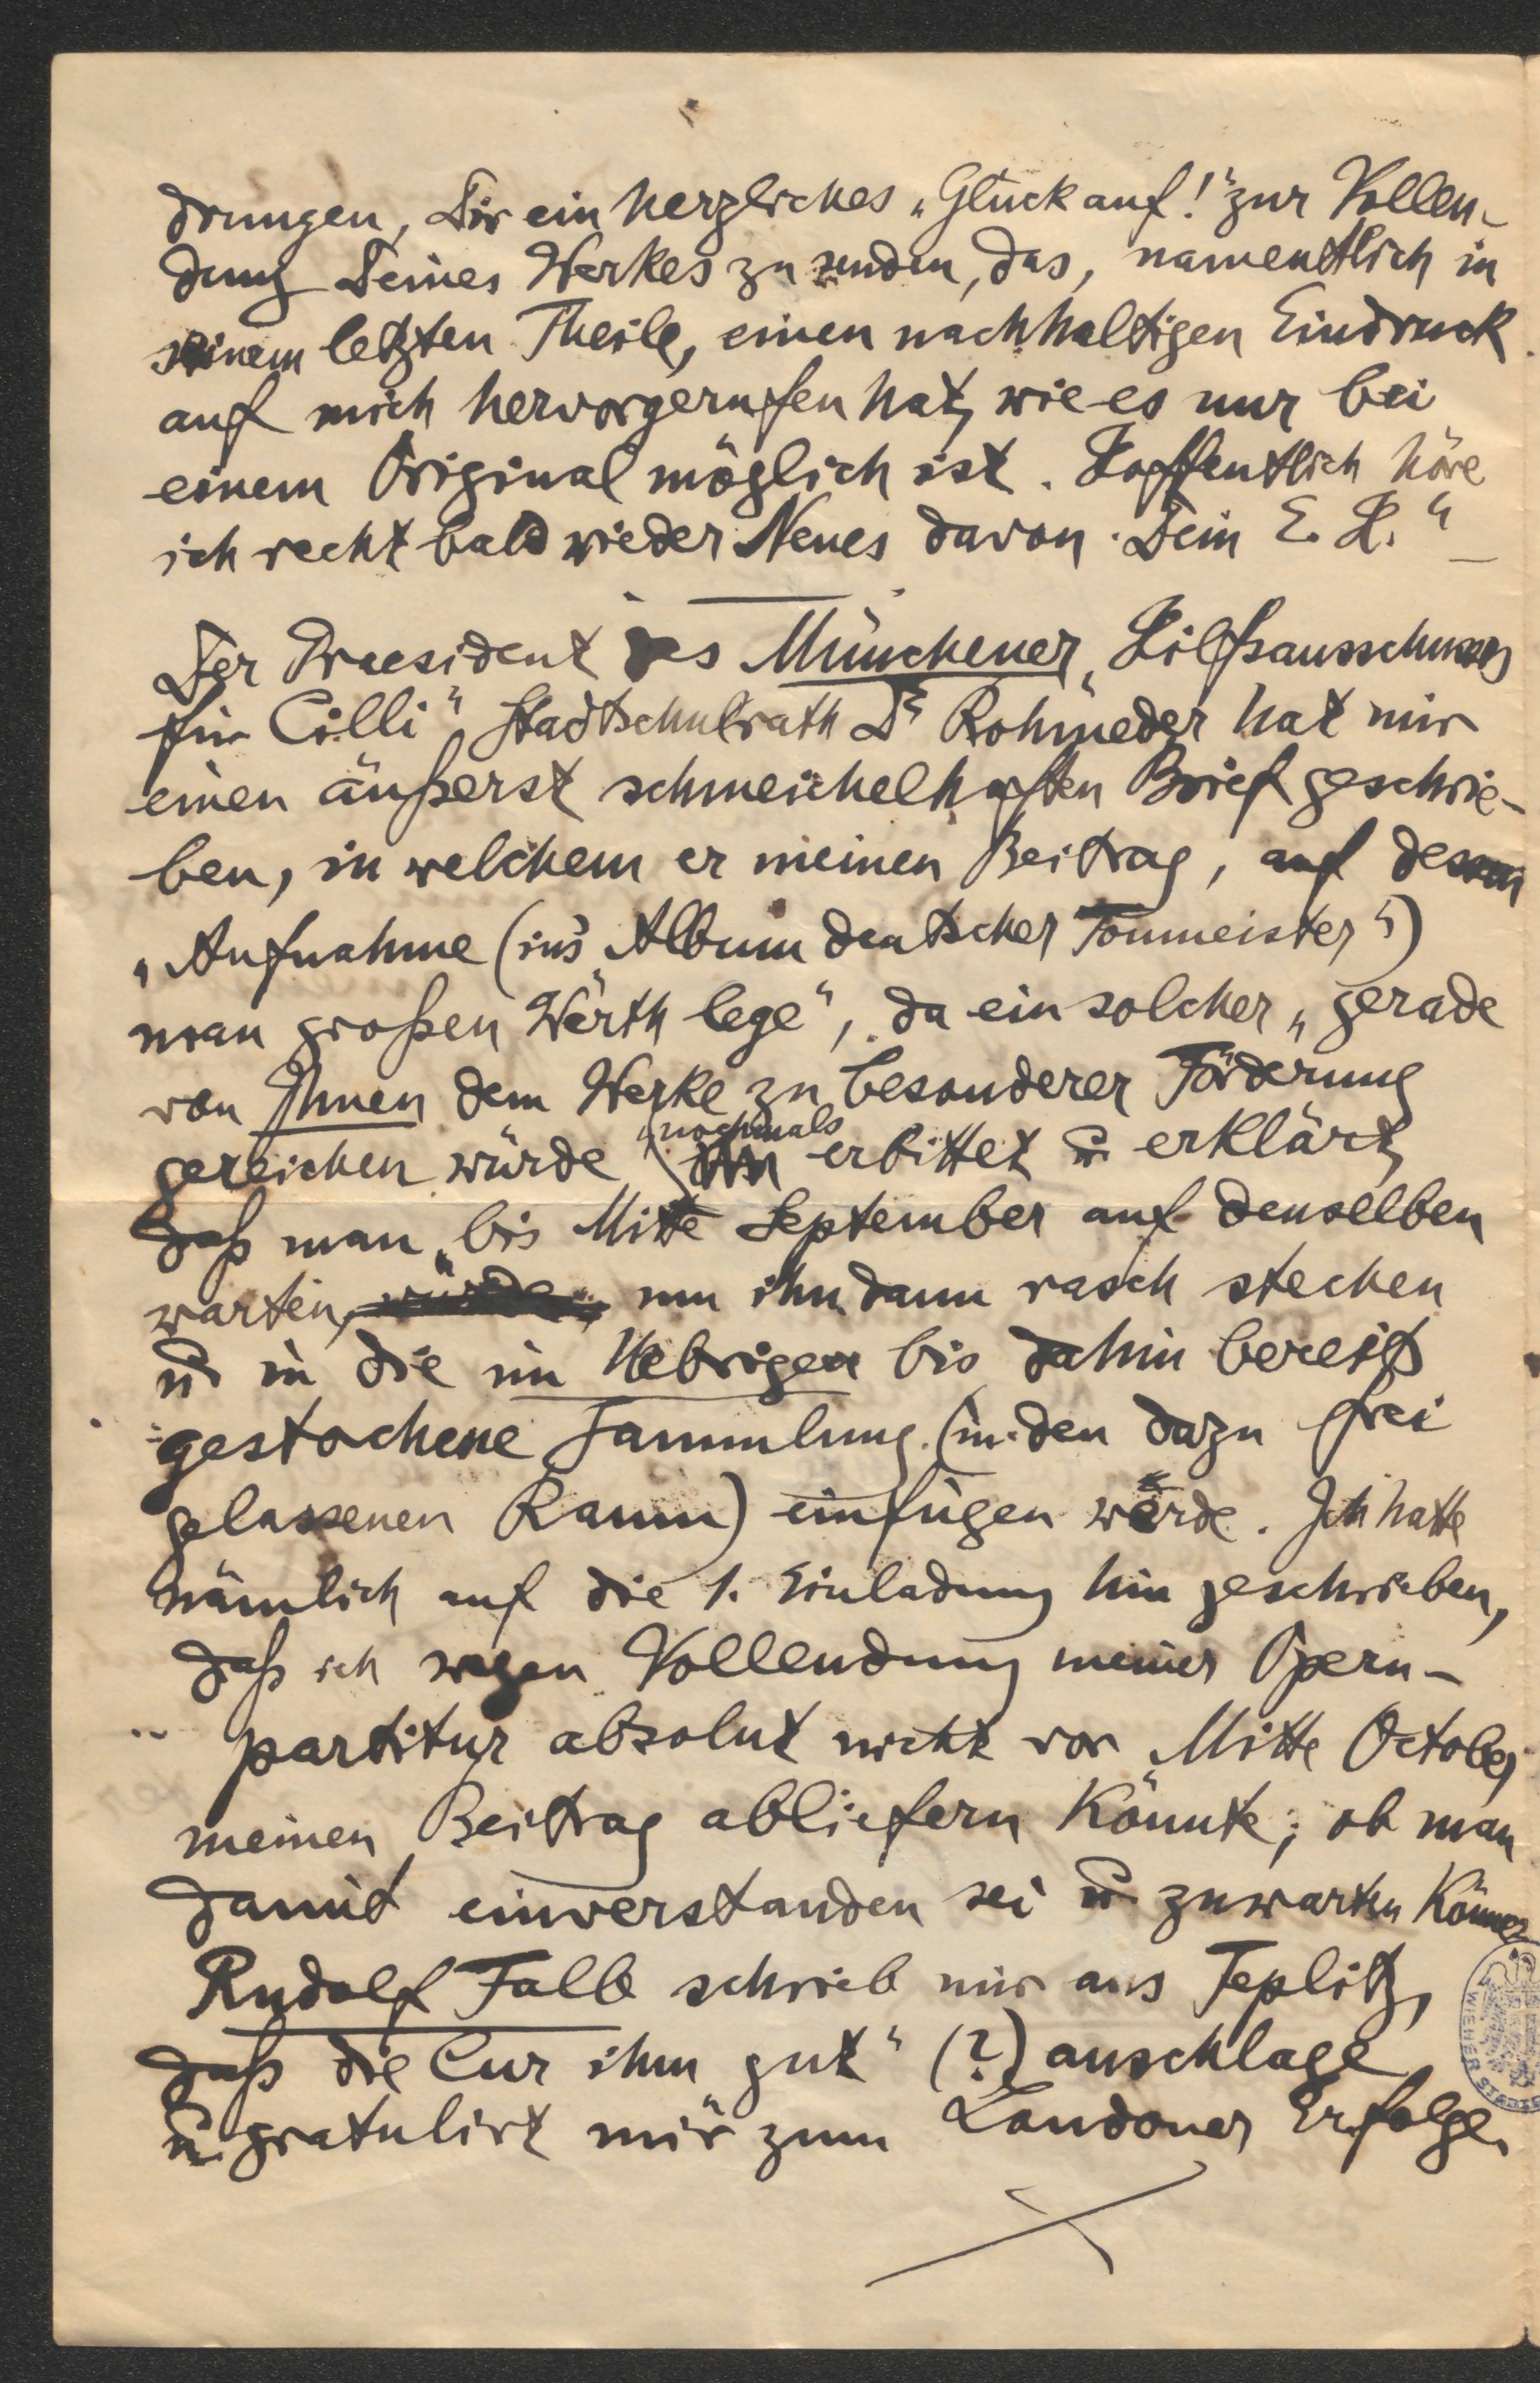 drungen, Dir ein herzliches „Glück auf!" zur Vollen-
dung Deines Werkes zu senden, das, namentlich in
seinem letzten Theile, einen nachhaltigen Eindruck
auf mich hervorgerufen hat, wie es nur bei
einem Original möglich ist. Hoffentlich höre
ich recht bald wieder Neues davon. Dein E. H."
Der Praesident des Münchener „Hilfsausschusses
für Cilli", Stadtschulrath Dr Rohmeder hat mir
einen äußerst schmeichelhaften Brief geschrie-
ben, in welchem er meinen Beitrag, auf dessen
„Aufnahme (in's „Album deutscher Tonmeister")
man großen Werth lege", da ein solcher „gerade
von Ihnen dem Werke zu besonderer Förderung
gereichen würde", nochmals erbittet u. erklärt,
daß man „bis Mitte September auf denselben
warten, würde, um ihn dann rasch stechen
u. in die im Uebrigen bis dahin bereits
gestochene Sammlung (in den dazu frei
gelassenen Raum) einfügen werde. Ich hatte
nämlich auf die 1. Einladung hin geschrieben,
daß ich wegen Vollendung meiner Opern-
partitur absolut nicht vor Mitte October
meinen Beitrag abliefern könnte; ob man
damit einverstanden sei u. zuwarten könne.
Rudolf Falb schrieb mir aus Teplitz,
daß die Cur ihm „gut" (?) anschlage
u. gratulirt mir zum Londoner Erfolge.
WIENER STADT